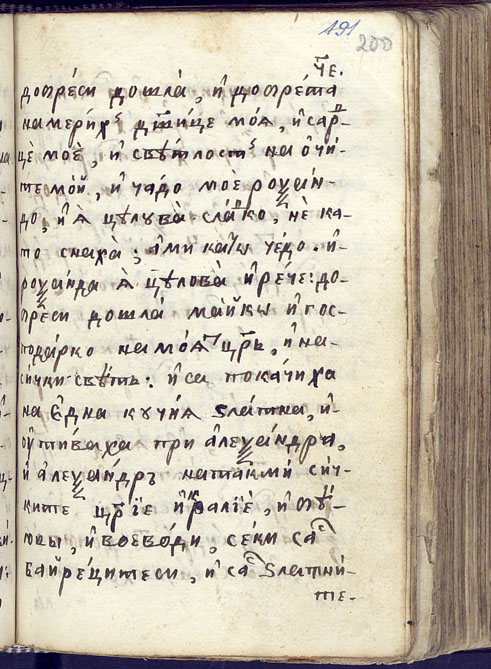 191
200
че.
добрѐси дошла̀, и҆ добрѐта
намери́хъ дш҃и́це моѧ̀, и҆ сар-
це моѐ, и҆ свѣ́тлость на ѻ҆чи́-
те моѝ, и҆ ча́до моѐ роѯа́н-
до, и҆ ѧ̀ цѣлува̀ сла́ко, нѐ ка-
то снаха̀; а҆ми като че́до. и҆
роѯа́нда ѧ̀ цѣлова̀ и҆ рѐче: до-
брѐси дошла̀ ма́йко и҆ гос-
пода́рко на моѧ̀ цр҃ь, и҆ на-
си́чки свѣ́тъ: и҆ са пока́чиха
на є҆дна̀ кучи́ѧ ѕла́тна, и҆
ѹ҆тива́ха при а҆леѯа́ндра,
и҆ а҆леѯа́ндръ натакмѝ си́ч-
ките цр҃їе и҆ кра́лїе, и҆
и҆ воево́ди, се́ки са
байре́цитеси, и҆ са ѕлатни́-
те.